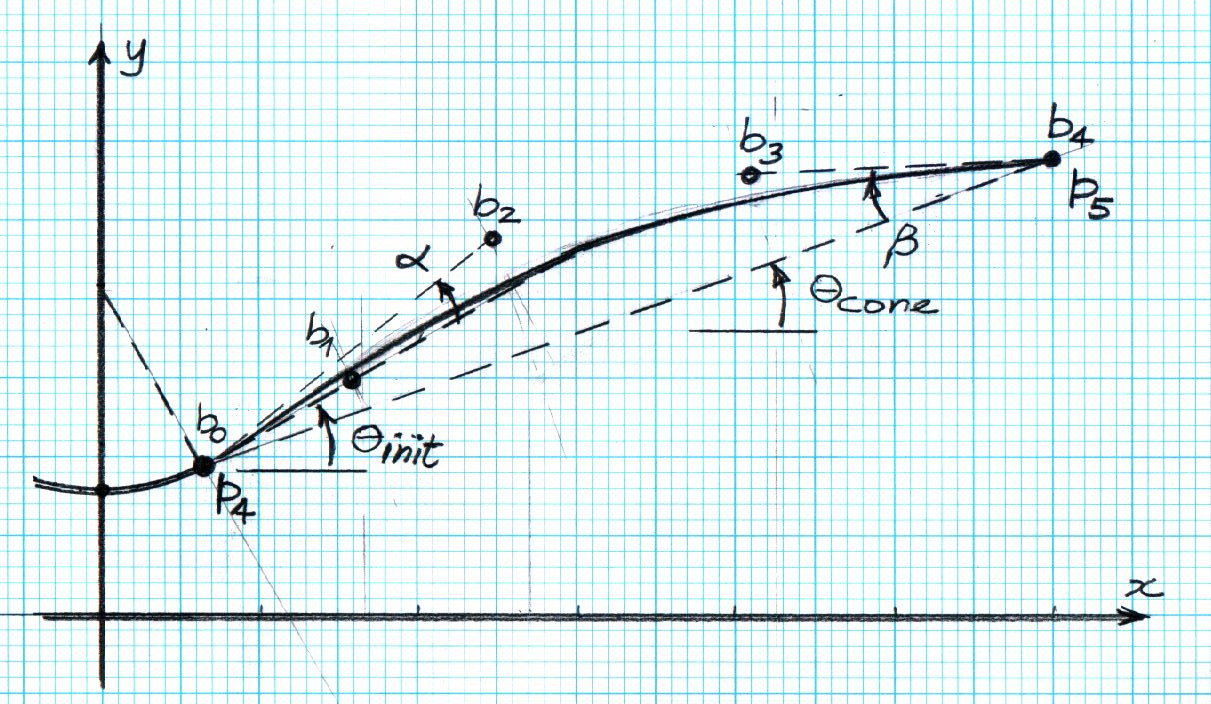 y
b4
b3
p5
b2
α
β
θcone
b1
b0
θinit
p4
x